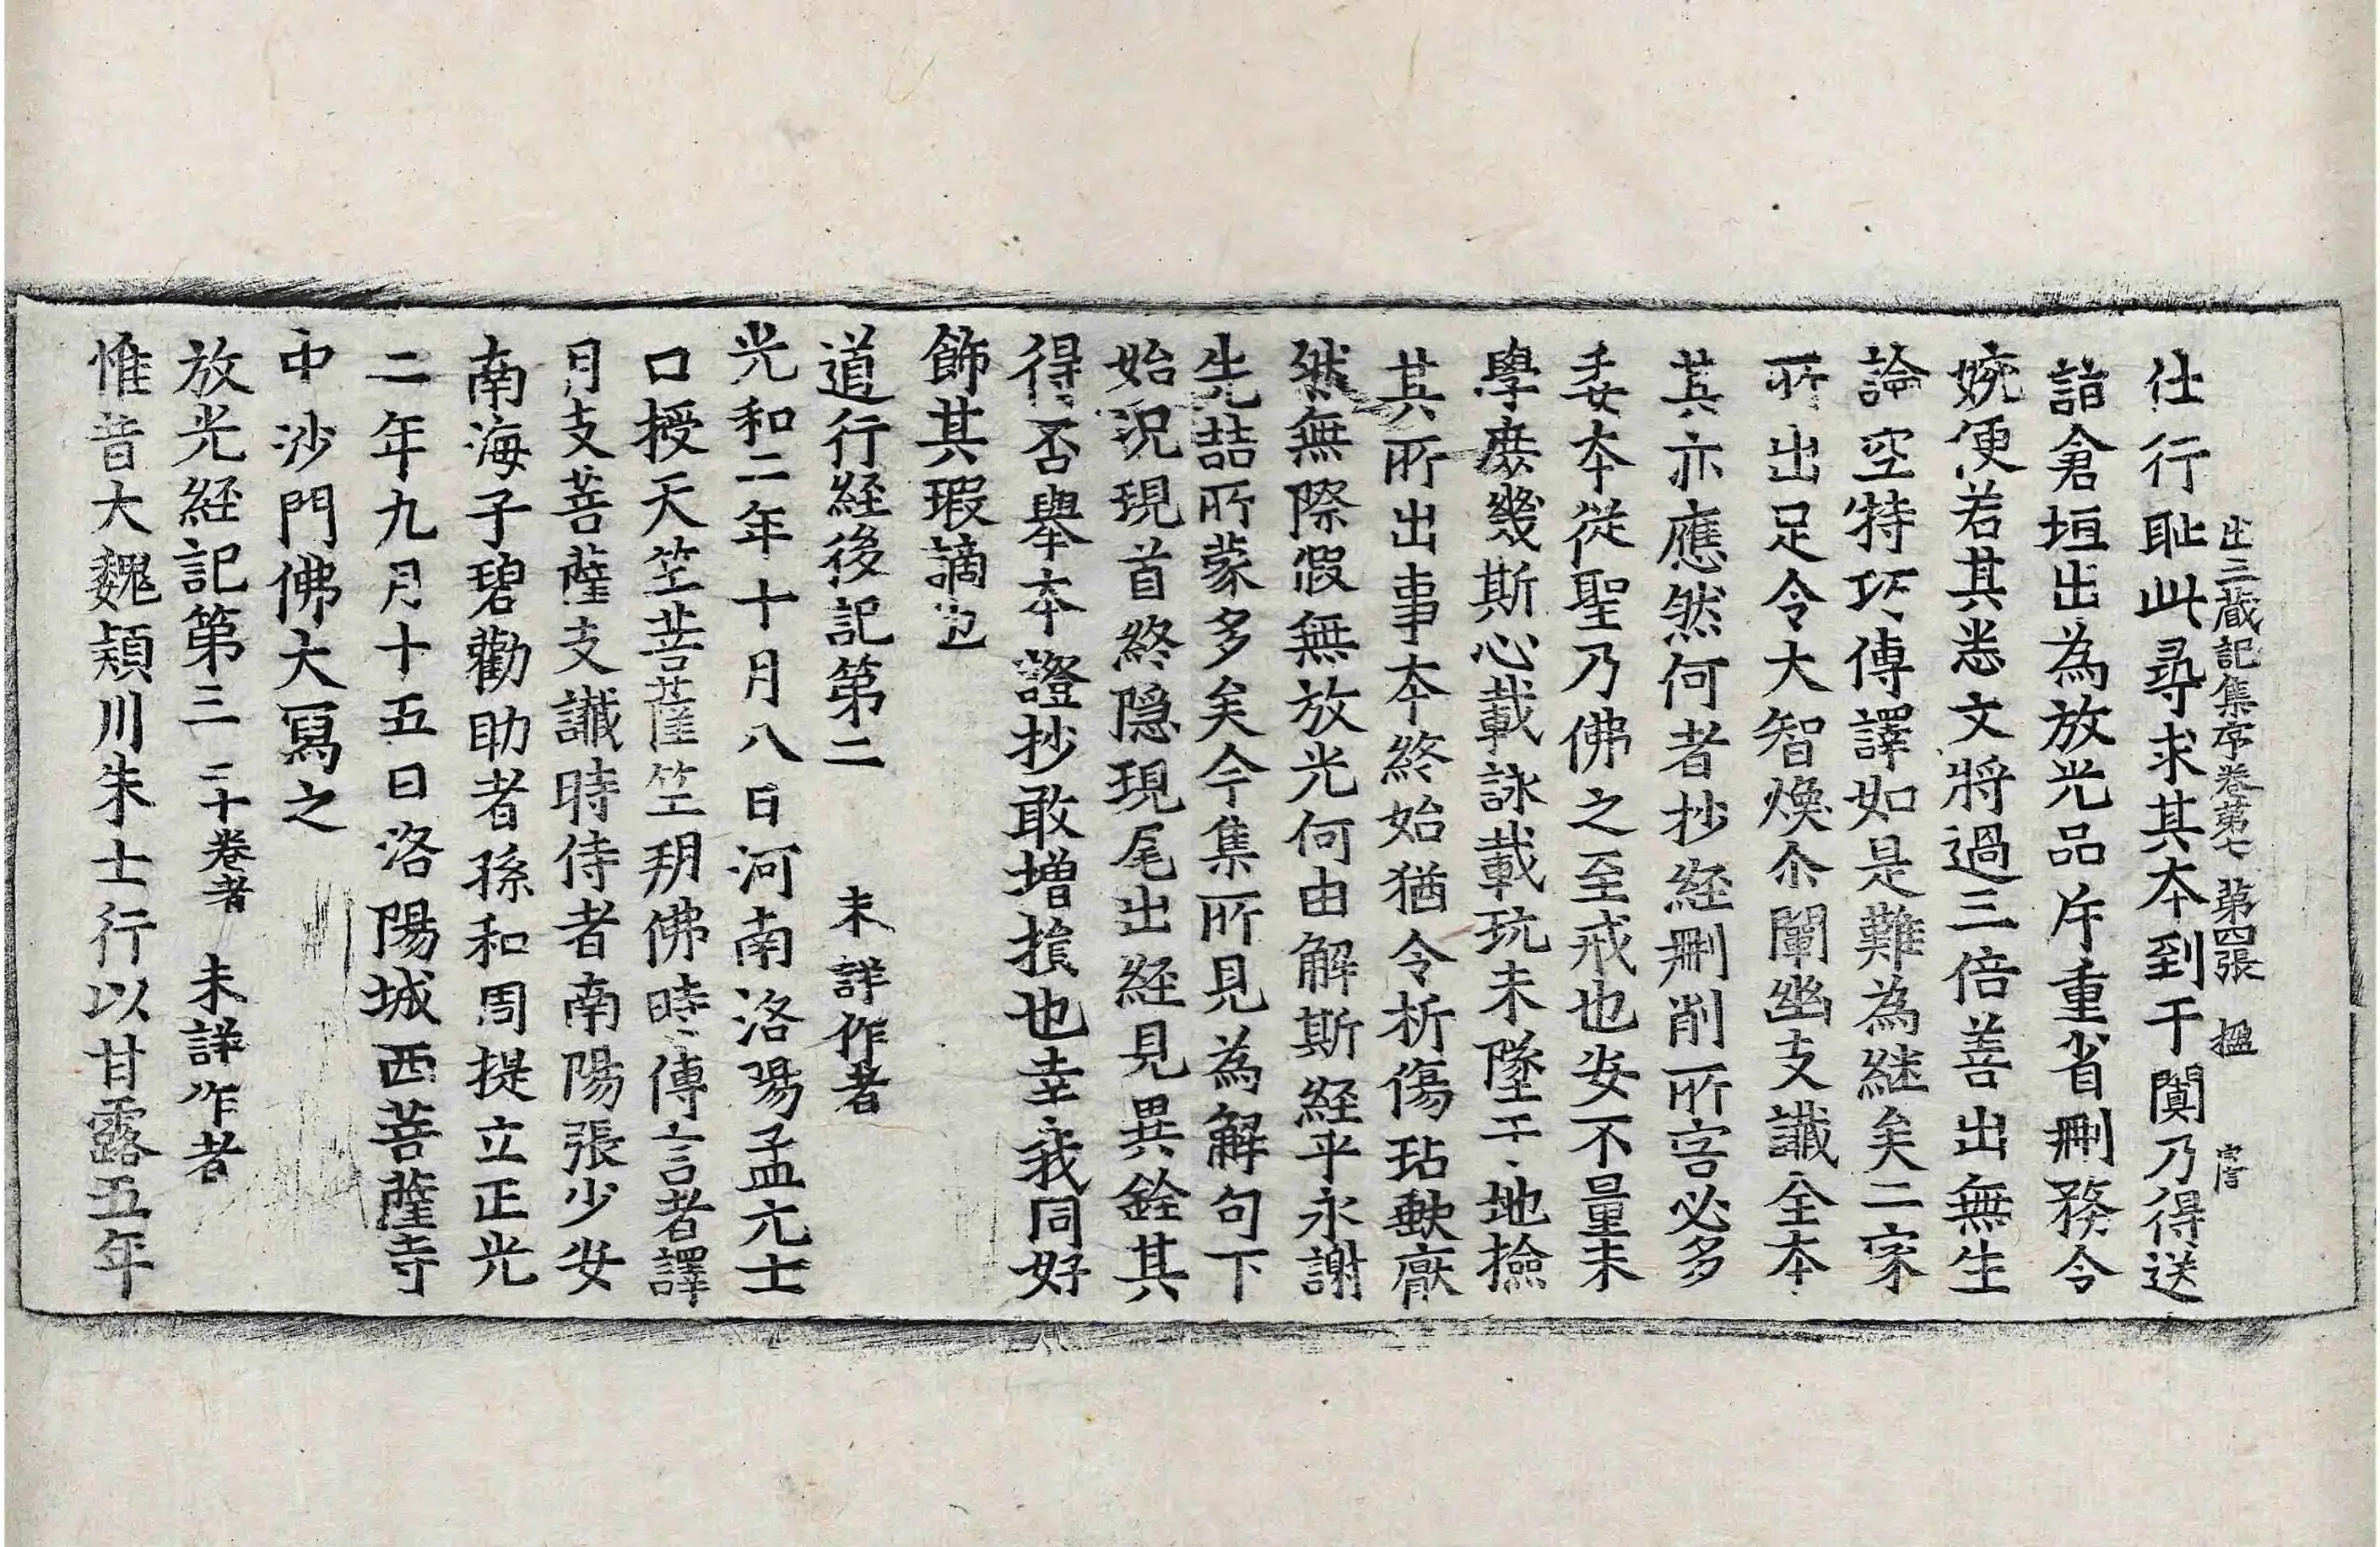 出三藏記集序卷第七 第四張 楹
仕行耻此尋求其本到于闐乃得送
詣倉垣出為放光品斥重省刪務令
婉便若其悉文將過三倍善出無生
論空特巧傳譯如是難為継矣二家
所出足令大智煥尒闡幽支讖全本
其亦應然何者抄経刪削所害必多
委本從聖乃佛之至戒也安不量末
學庶幾斯心載詠載玩未墜于地撿
其所出事本終始猶令折傷玷缺厳
然無際假無放光何由解斯経乎永謝
先喆所蒙多矣今集所見為解句下
始況現首終隠現尾出経見異銓其
得否舉本證抄敢増損也幸我同好
飾其瑕謫也
道行経後記第二 未詳作者
光和二年十月八日河南洛陽孟元士
口授天竺菩薩竺朔佛時傳言者譯
月支菩薩支讖時侍者南陽張少安
南海子碧勸助者孫和周提立正光
二年九月十五日洛陽城西菩薩寺
中沙門佛大寫之
放光経記第三 二十卷者 未詳作者
惟昔大魏頴川朱士行以甘露五年